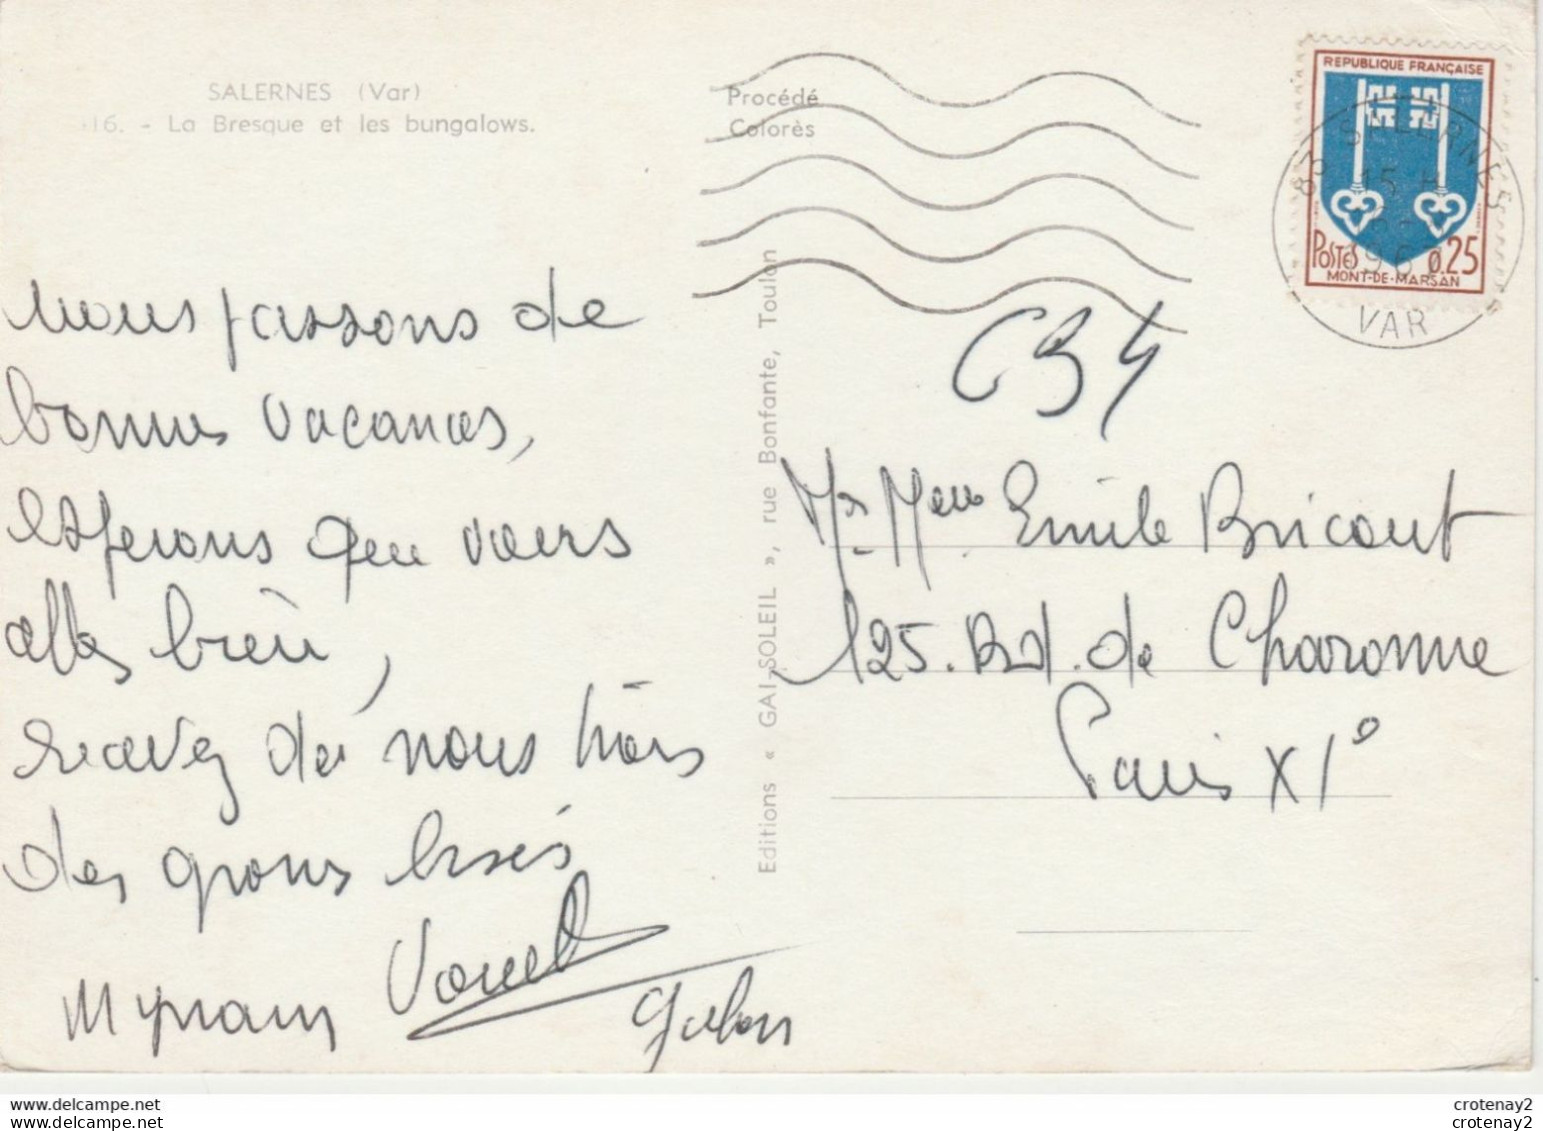 SALERNES (Var)
16. - La Bresque et les bungalows.
Procédé
Colorès
REPUBLIQUE FRANÇAISE
POSTES 0.25
MONT-DE-MARSAN
83 SALERNES
15 H
VAR
Editions « GAI-SOLEIL », rue Bonfante, Toulon
Nous passons de
bonnes vacances,
esperons que vous
allez bien,
recevez de nous trois
des gros bises
Myriam
C34
Mr. Mme Emile Bricout
125. Bd. de Charonne
Paris XIe
www.delcampe.net
www.delcampe.net
crotenay2
crotenay2